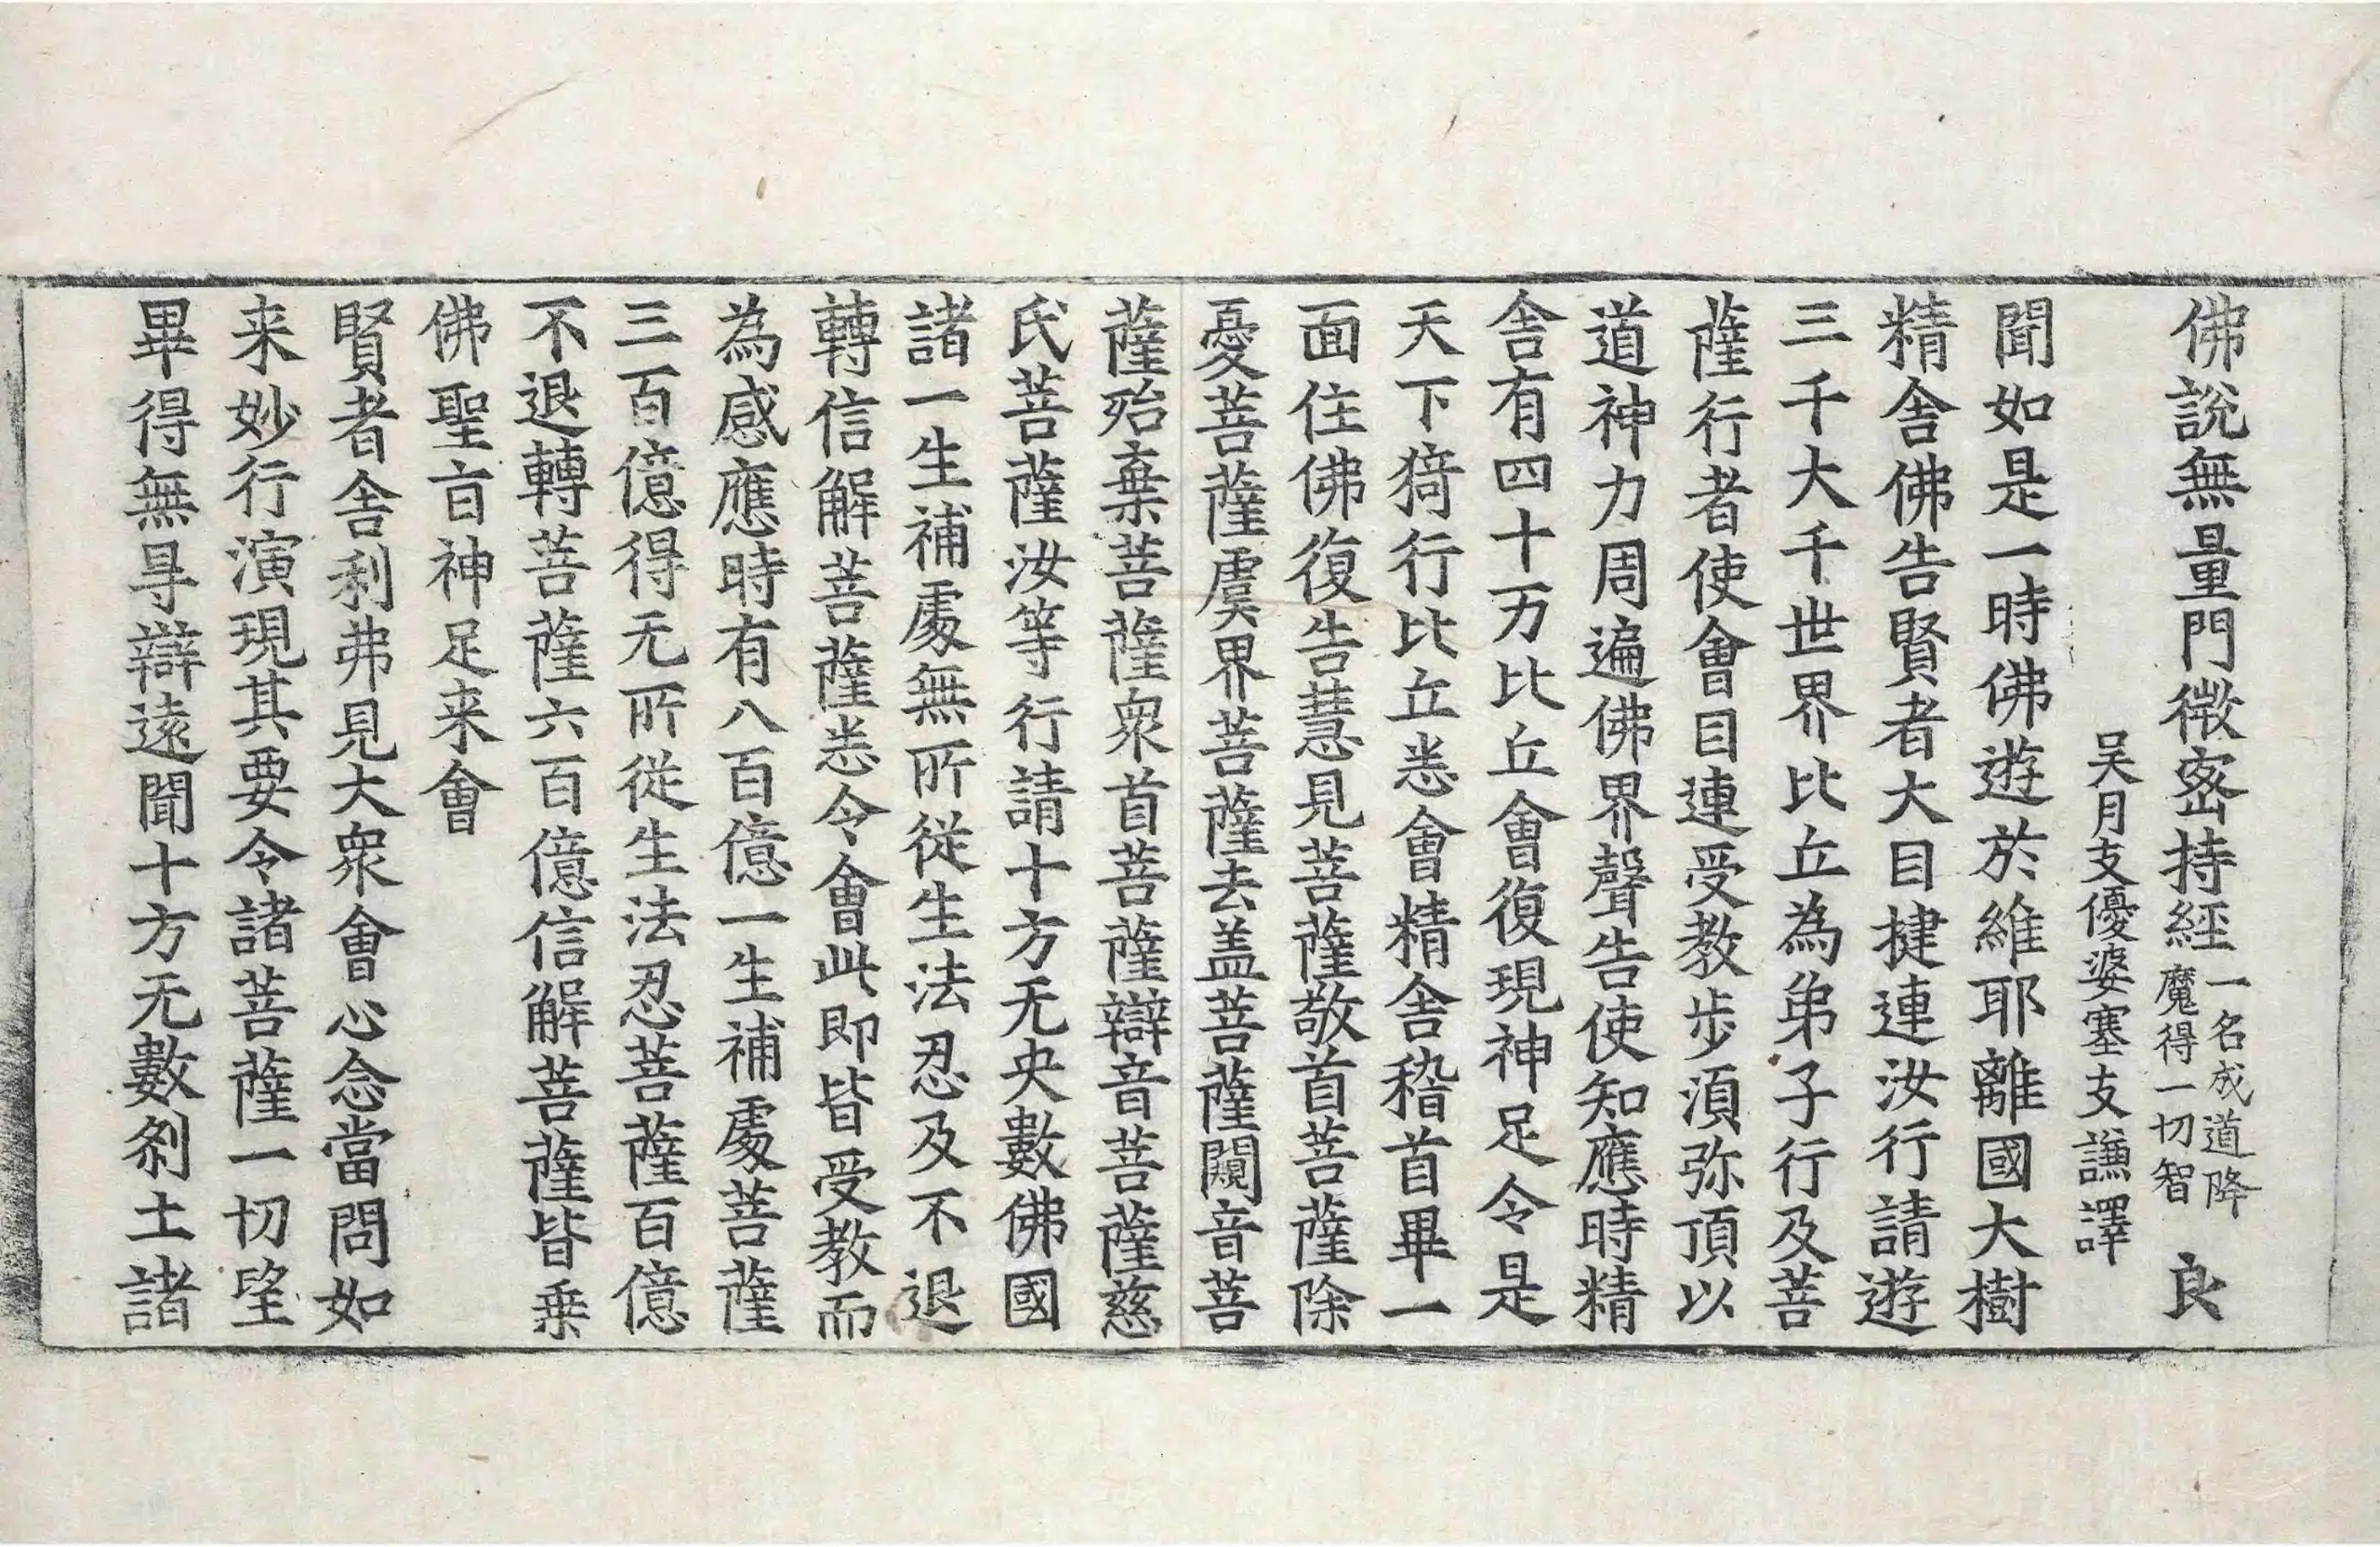 佛說無量門微密持經一名成道降魔得一切智 良
吳月支優婆塞支謙譯
聞如是一時佛遊於維耶離國大樹
精舎佛告賢者大目揵連汝行請遊
三千大千世界比丘為弟子行及菩
薩行者使會目連受教步湏弥頂以
道神力周遍佛界聲告使知應時精
舎有四十万比丘會復現神足令是
天下猗行比丘悉會精舎稽首畢一
面住佛復告慧見菩薩敬首菩薩除
憂菩薩虞界菩薩去盖菩薩闚音菩
薩殆棄菩薩衆首菩薩辯音菩薩慈
氏菩薩汝等行請十方无央數佛國
諸一生補處無所從生法忍及不退
轉信解菩薩悉令會此即皆受教而
為感應時有八百億一生補處菩薩
三百億得无所從生法忍菩薩百億
不退轉菩薩六百億信解菩薩皆乗
佛聖㫖神足来會
賢者舎利弗見大衆會心念當問如
来妙行演現其要令諸菩薩一切望
畢得無㝵辯遠聞十方无數剎土諸